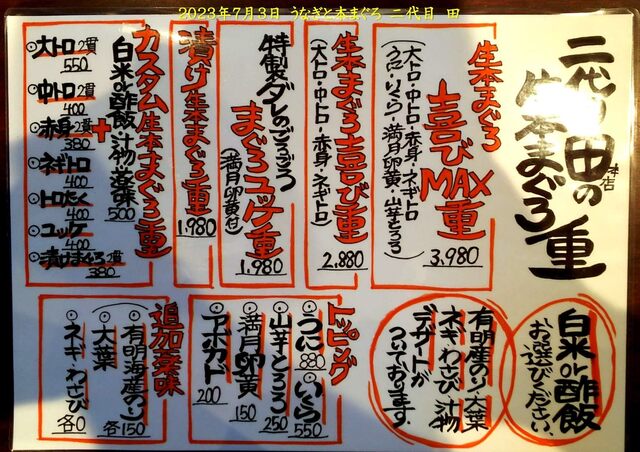 2023年7月3日 うなぎと本まぐろ 二代目 田
二代目田の
本店
生本まぐろ重
生本まぐろ
喜びMAX重
大トロ・中トロ・赤身・ネギトロ
ウニ・いくら・満月卵黄・山芋とろろ
3.980
生本まぐろ喜び重
(大トロ・中トロ・赤身・ネギトロ)
2.880
特製ダレのごろごろ
まぐろユッケ重
(満月卵黄付)
1.980
漬け生本まぐろ重
1.980
カスタム生本まぐろ重
白米or酢飯・汁物・薬味
500
+
大トロ2貫
550
中トロ2貫
400
赤身2貫
380
ネギトロ
400
トロたく
400
ユッケ
400
漬けまぐろ2貫
380
白米or酢飯
お選びください。
有明産のり 大葉
ネギ わさび 汁物
デザートが
ついております。
トッピング
うに
880
いくら
550
山芋とろろ
250
満月卵黄
150
アボカド
200
追加薬味
有明海産のり
大葉
各150
ネギ・わさび
各0